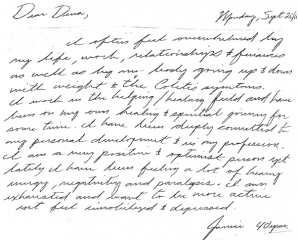 Dear Dana,
Monday, Sept
I often feel overwhelmed by
my life, work, relationships & finances
as well as by my body going up & down
with weight & the Colitis symptoms.
I work in the helping/healing field and have
been on my own healing & spiritual journey for
some time. I have been deeply committed to
my personal development & in my profession.
I am a very positive & optimist person yet
lately I have been feeling a lot of heavy
energy, negativity and paralysis. I am
exhausted and want to be more active
yet feel immobilized & depressed.
40 years